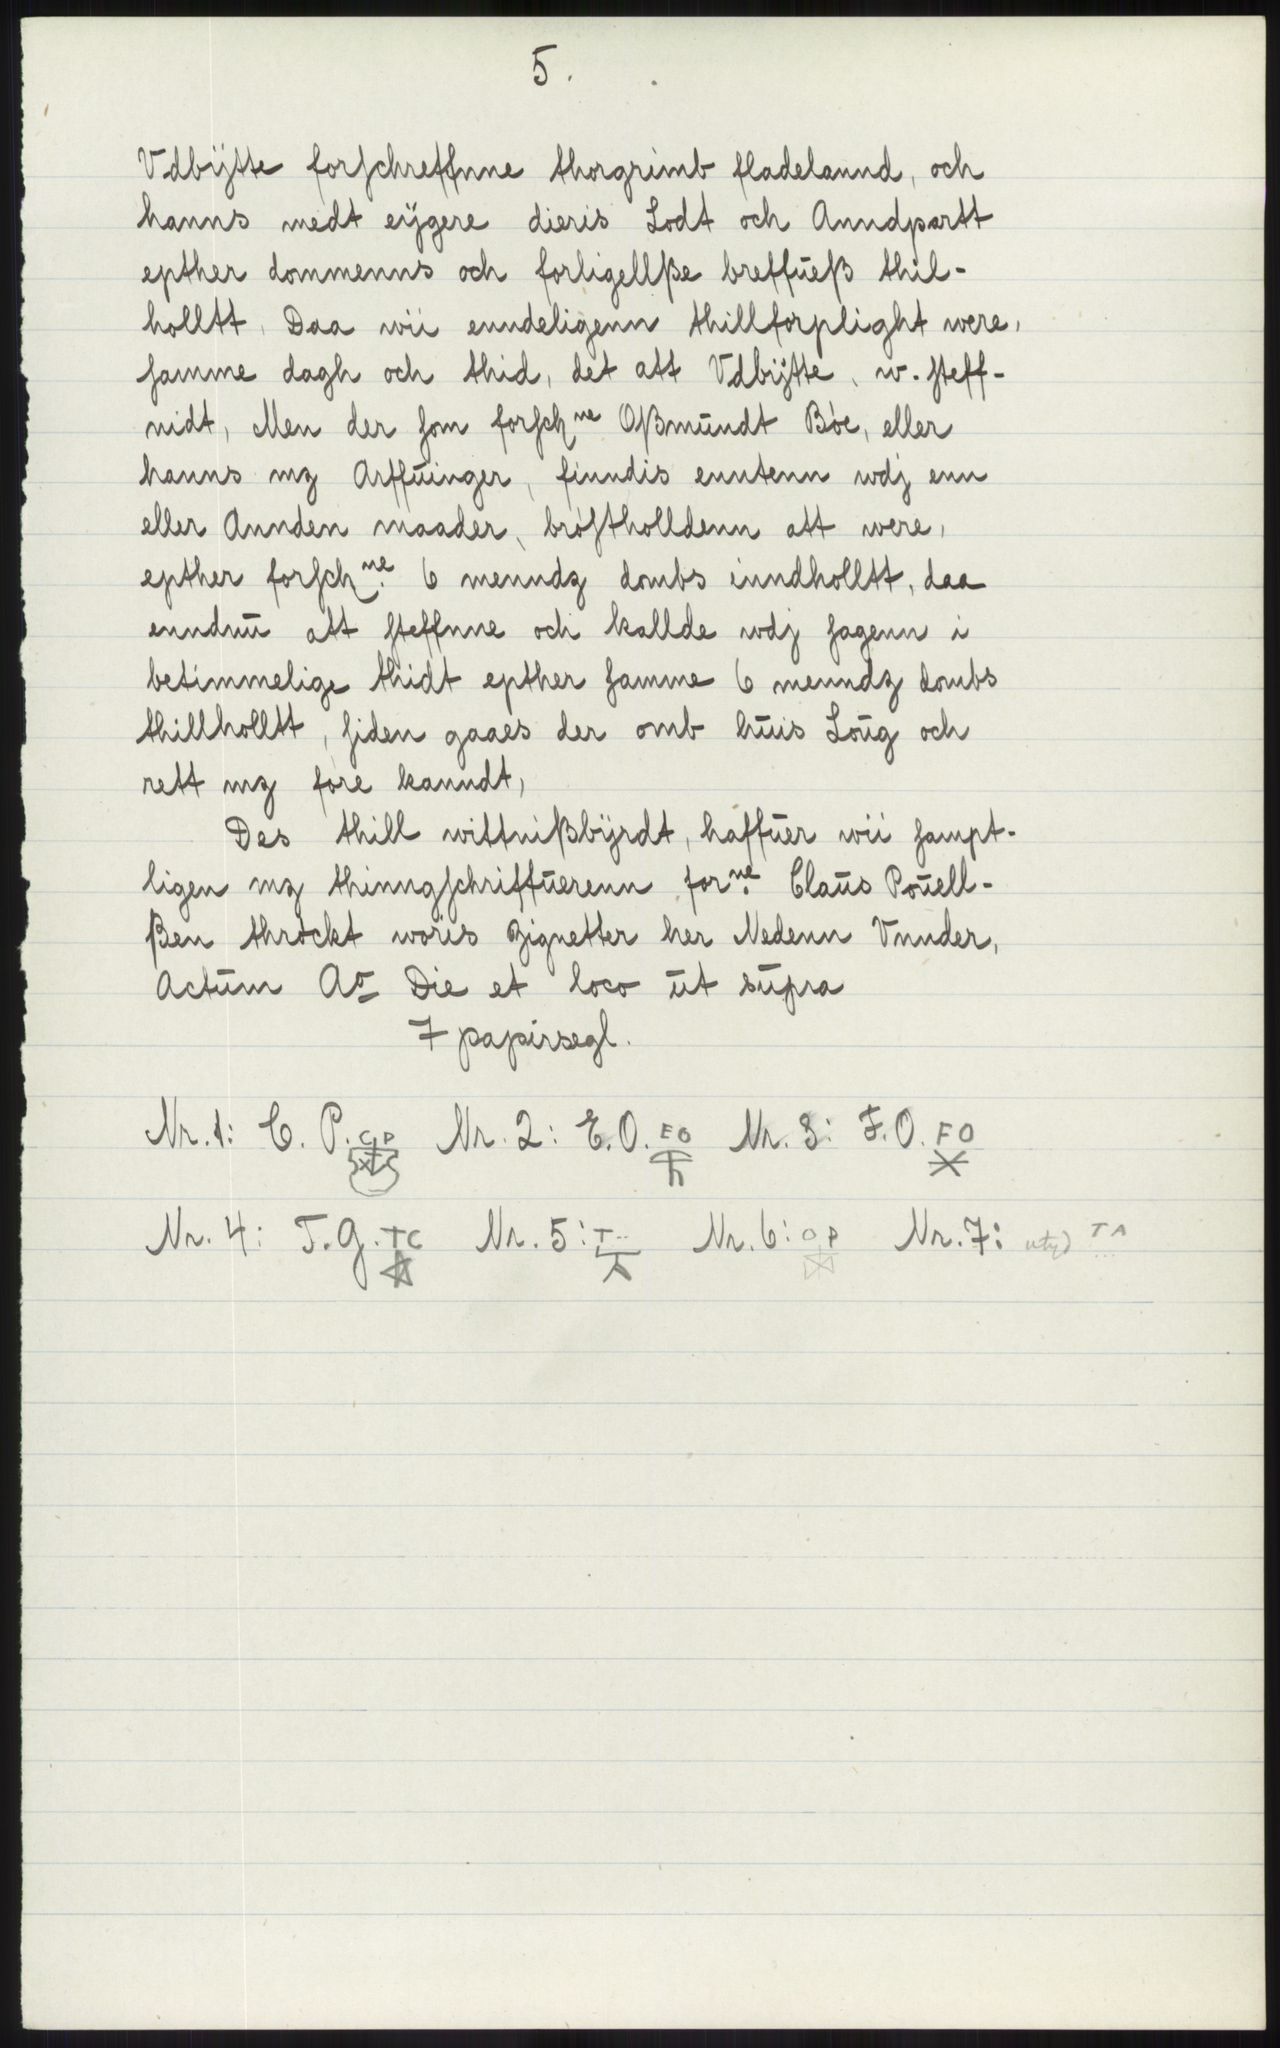 5.
Vdbÿtte forschreffnne thorgrimb fladelannd, och
hanns medt eÿgere dieris Lodt och Anndpartt
epther dommenns och forligellße breffūeß thil-
holltt, Daa wii enndeligenn thillforplight were,
samme dagh och thid, det att Vdbÿtte, w-steff-
nidt, Men der som forschne Oßmūndt Bòe, eller
hanns mz Arffūinger, finndis enntenn wdj enn
eller Annden maader, bròstholldenn att were,
epther forschne. 6 menndz dombs inndholltt, daa
enndnū att steffnne och kallde wdj sagenn i
betimmelige thidt epther samme 6 menndz dombs
thillholltt, siden gaaes der omb hūis Loūg och
rett mz fore kanndt,
Des thill wittnißbÿrdt, haffūer wii sampt-
ligen mz thinngschriffūerenn forne. Claūs Poūell-
ßen thròckt wòris Zignetter her Nedenn Vnnder,
Actūm Ao Die et loco ūt sūpra
7 papirsegl.
Nr. 1: C. P. CP Nr. 2: E. O. EO Nr. 3: F. O. FO
Nr. 4: T. G. TC Nr. 5: T... Nr. 6: O P Nr. 7: utyd T A ...